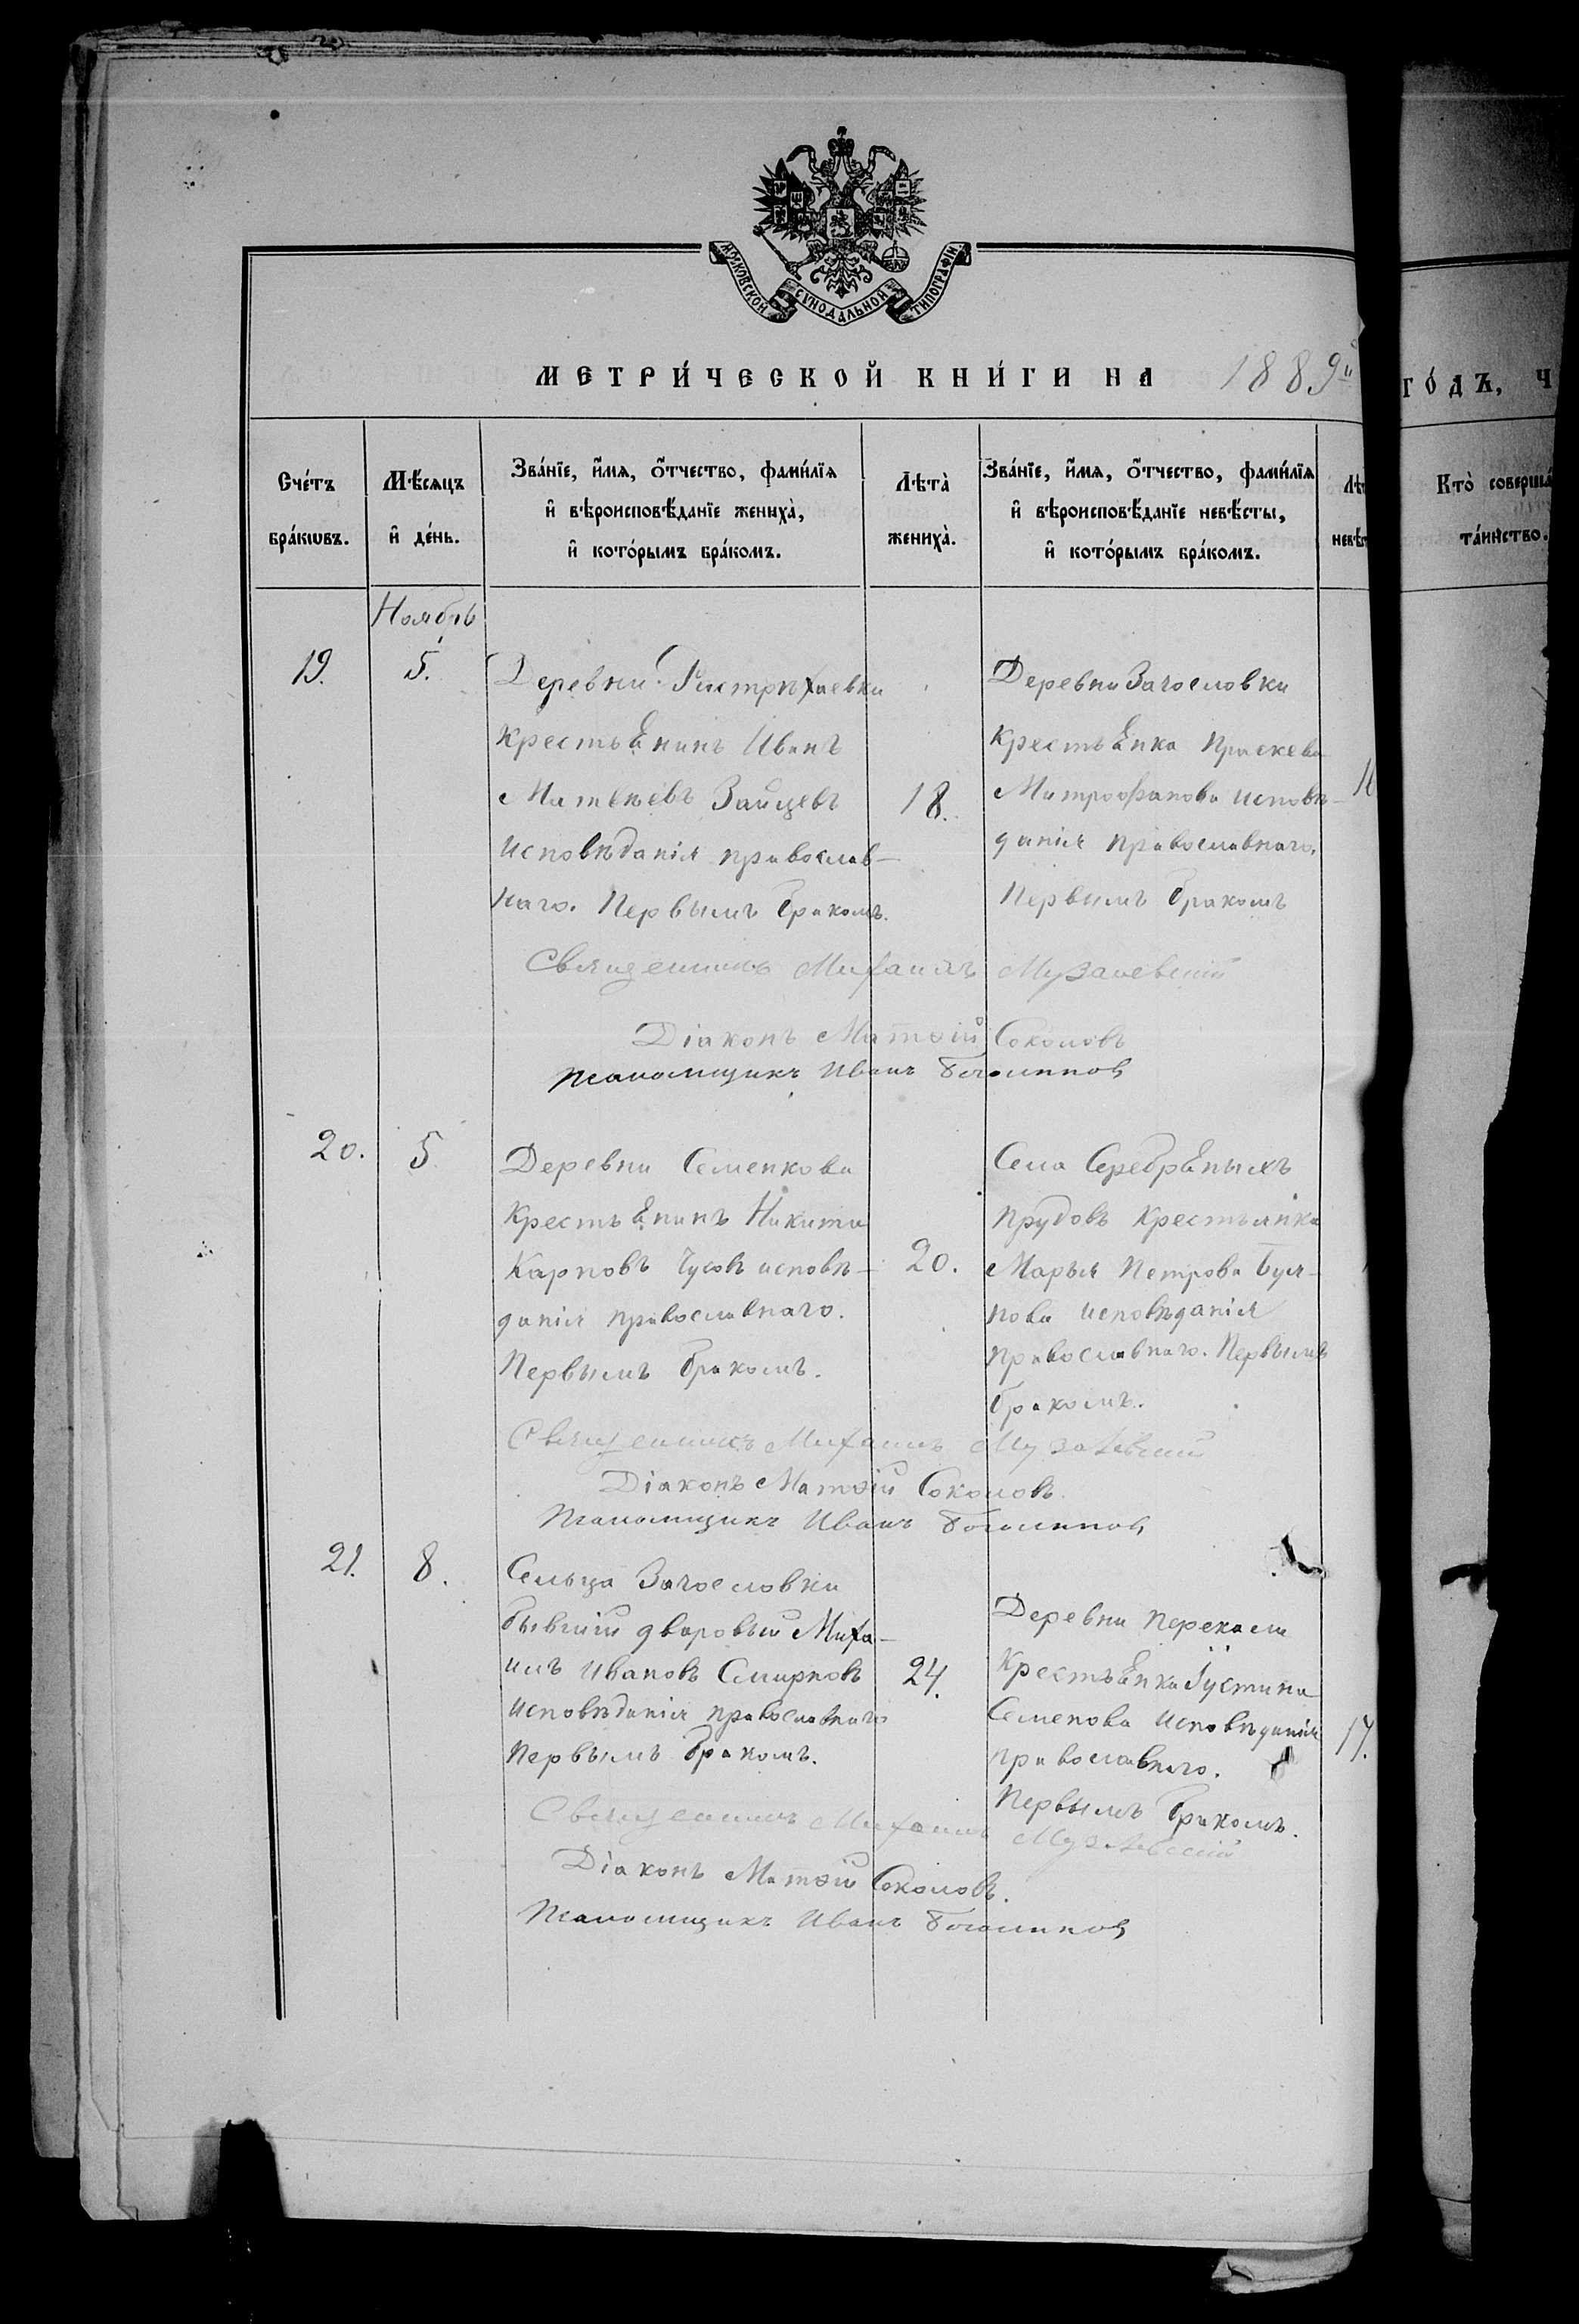 МОСКОВСКОЙ СѴНОДАЛЬНОЙ ТИПОГРАФІИ
МЕТРИ́ЧЕСКОЙ КНИ́ГИ НА 1889й
ГО́ДЪ, Ч
Сче́тъ бра́кѡвъ.
Мѣ́сяцъ и де́нь.
Зва́нїе, и́мѧ, ѻ҆́тчество, фами́лїѧ
и вѣроисповѣ́данїе жениха̀,
и кото́рымъ бра́комъ.
Лѣта̀ жениха̀.
Зва́нїе, и́мѧ, ѻ҆́тчество, фами́лїѧ
и вѣроисповѣ́данїе невѣ́сты,
и кото́рымъ бра́комъ.
Кто̀ соверша́
та́инство.
Ноябрь
19.
5.
Деревни
крестьянинъ Иванъ
Матвѣевъ Зайцевъ
исповѣданія православ-
наго. Первымъ бракомъ.
18.
Деревни
крестьянка Праскева
Митрофанова исповѣ-
данія православнаго.
Первымъ бракомъ
Священникъ Михаилъ
Діаконъ Матѳій Соколовъ
Псаломщикъ Иванъ
20.
5
Деревни Семенкова
крестьянинъ Никита
Карповъ Гусовъ исповѣ-
данія православнаго.
Первымъ бракомъ.
20.
Села Серебряныхъ
Прудовъ крестьянка
Марья Петрова Буля-
нова исповѣданія
православнаго. Первымъ
бракомъ.
Священникъ Михаилъ
Діаконъ Матѳій Соколовъ
Псаломщикъ Иванъ
21.
8.
Сельца
бывшій дворовый Миха-
илъ Ивановъ Смирновъ
исповѣданія православнаго
первымъ бракомъ.
24.
Деревни
крестьянка Іустина
Семенова исповѣданія
православнаго.
Первымъ бракомъ.
17.
Священникъ Михаилъ
Діаконъ Матѳій Соколовъ.
Псаломщикъ Иванъ